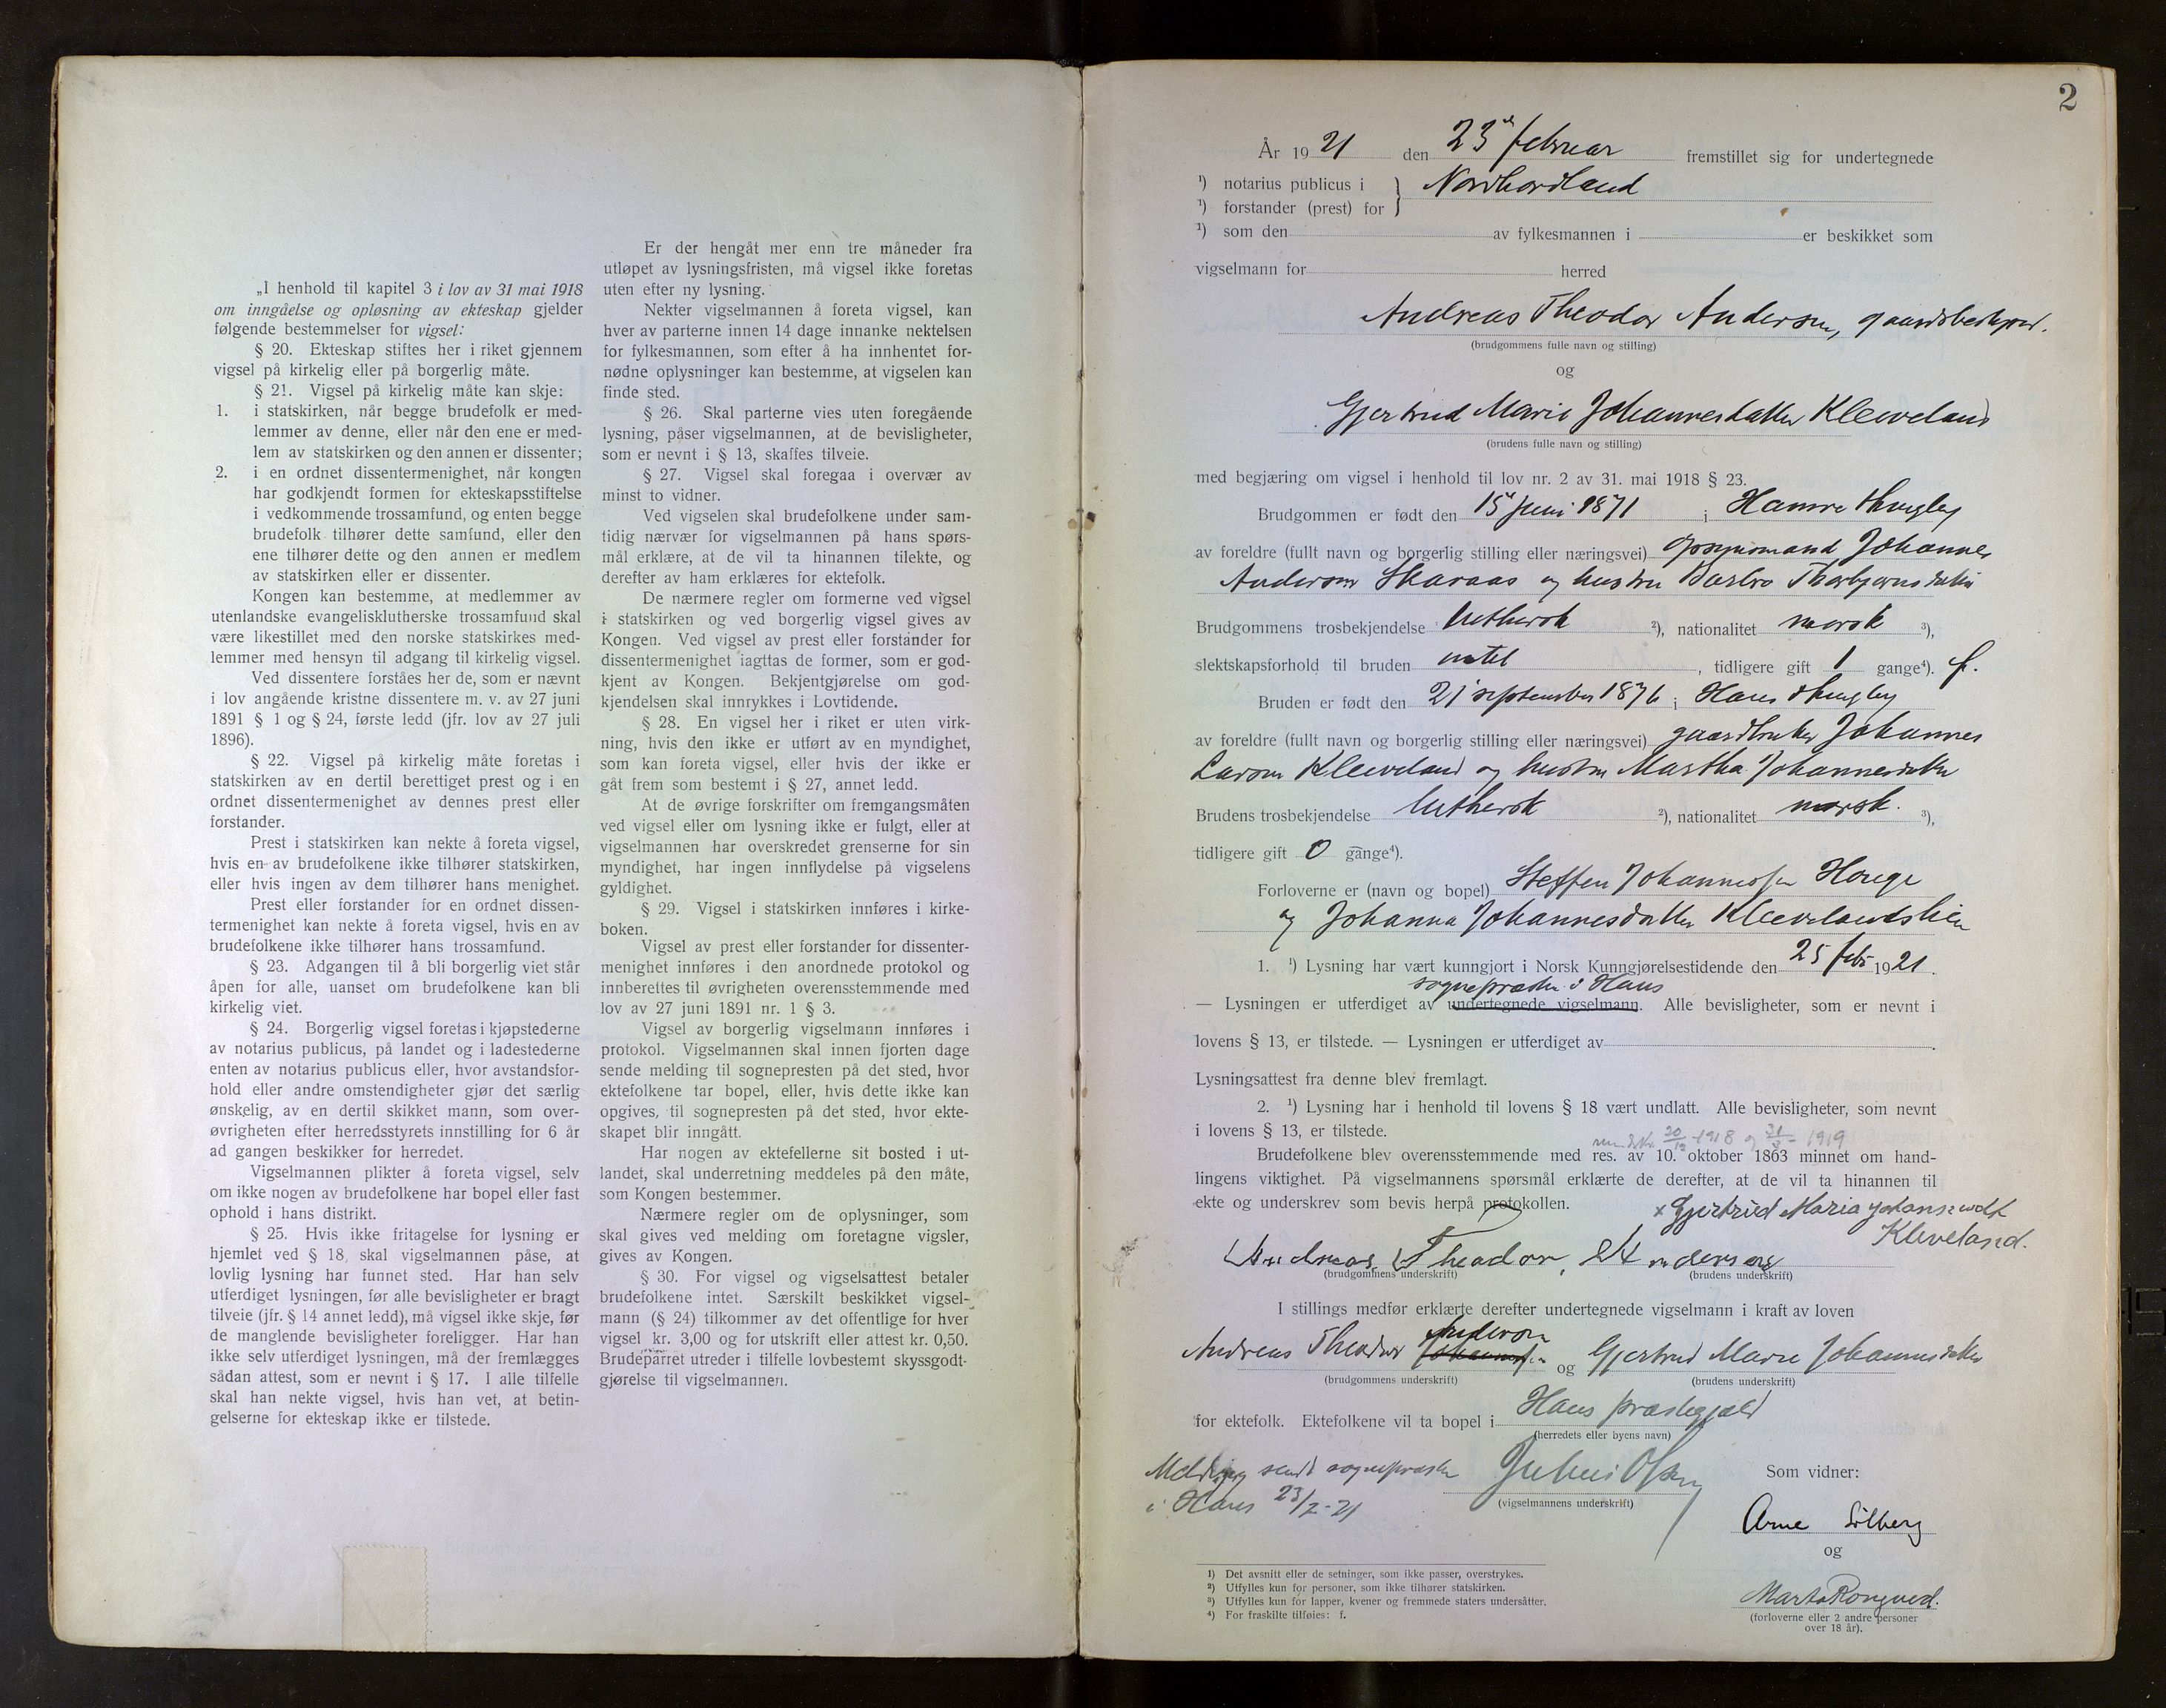 „I henhold til kapitel 3 i lov av 31 mai 1918
om inngåelse og opløsning av ekteskap gjelder
følgende bestemmelser for vigsel:
§ 20. Ekteskap stiftes her i riket gjennem
vigsel på kirkelig eller på borgerlig måte.
§ 21. Vigsel på kirkelig måte kan skje:
1. i statskirken, når begge brudefolk er med-
lemmer av denne, eller når den ene er med-
lem av statskirken og den annen er dissenter;
2. i en ordnet dissentermenighet, når kongen
har godkjendt formen for ekteskapsstiftelse
i vedkommende trossamfund, og enten begge
brudefolk tilhører dette samfund, eller den
ene tilhører dette og den annen er medlem
av statskirken eller er dissenter.
Kongen kan bestemme, at medlemmer av
utenlandske evangelisklutherske trossamfund skal
være likestillet med den norske statskirkes med-
lemmer med hensyn til adgang til kirkelig vigsel.
Ved dissentere forståes her de, som er nævnt
i lov angående kristne dissentere m. v. av 27 juni
1891 § 1 og § 24, første ledd (jfr. lov av 27 juli
1896).
§ 22. Vigsel på kirkelig måte foretas i
statskirken av en dertil berettiget prest og i en
ordnet dissentermenighet av dennes prest eller
forstander.
Prest i statskirken kan nekte å foreta vigsel,
hvis en av brudefolkene ikke tilhører statskirken,
eller hvis ingen av dem tilhører hans menighet.
Prest eller forstander for en ordnet dissen-
termenighet kan nekte å foreta vigsel, hvis en av
brudefolkene ikke tilhører hans trossamfund.
§ 23. Adgangen til å bli borgerlig viet står
åpen for alle, uanset om brudefolkene kan bli
kirkelig viet.
§ 24. Borgerlig vigsel foretas i kjøpstederne
av notarius publicus, på landet og i ladestederne
enten av notarius publicus eller, hvor avstandsfor-
hold eller andre omstendigheter gjør det særlig
ønskelig, av en dertil skikket mann, som over-
øvrigheten efter herredsstyrets innstilling for 6 år
ad gangen beskikker for herredet.
Vigselmannen plikter å foreta vigsel, selv
om ikke nogen av brudefolkene har bopel eller fast
ophold i hans distrikt.
§ 25. Hvis ikke fritagelse for lysning er
hjemlet ved § 18, skal vigselmannen påse, at
lovlig lysning har funnet sted. Har han selv
utferdiget lysningen, før alle bevisligheter er bragt
tilveie (jfr. § 14 annet ledd), må vigsel ikke skje, før
de manglende bevisligheter foreligger. Har han
ikke selv utferdiget lysningen, må der fremlægges
sådan attest, som er nevnt i § 17. I alle tilfelle
skal han nekte vigsel, hvis han vet, at betin-
gelserne for ekteskap ikke er tilstede.
Er der hengåt mer enn tre måneder fra
utløpet av lysningsfristen, må vigsel ikke foretas
uten efter ny lysning.
Nekter vigselmannen å foreta vigsel, kan
hver av parterne innen 14 dage innanke nektelsen
for fylkesmannen, som efter å ha innhentet for-
nødne oplysninger kan bestemme, at vigselen kan
finde sted.
§ 26. Skal parterne vies uten foregående
lysning, påser vigselmannen, at de bevisligheter,
som er nevnt i § 13, skaffes tilveie.
§ 27. Vigsel skal foregaa i overvær av
minst to vidner.
Ved vigselen skal brudefolkene under sam-
tidig nærvær for vigselmannen på hans spørs-
mål erklære, at de vil ta hinannen tilekte, og
derefter av ham erklæres for ektefolk.
De nærmere regler om formerne ved vigsel
i statskirken og ved borgerlig vigsel gives av
Kongen. Ved vigsel av prest eller forstander for
dissentermenighet iagttas de former, som er god-
kjent av Kongen. Bekjentgjørelse om god-
kjendelsen skal innrykkes i Lovtidende.
§ 28. En vigsel her i riket er uten virk-
ning, hvis den ikke er utført av en myndighet,
som kan foreta vigsel, eller hvis der ikke er
gåt frem som bestemt i § 27, annet ledd.
At de øvrige forskrifter om fremgangsmåten
ved vigsel eller om lysning ikke er fulgt, eller at
vigselmannen har overskredet grenserne for sin
myndighet, har ingen innflydelse på vigselens
gyldighet.
§ 29. Vigsel i statskirken innføres i kirke-
boken.
Vigsel av prest eller forstander for dissenter-
menighet innføres i den anordnede protokol og
innberettes til øvrigheten overensstemmende med
lov av 27 juni 1891 nr. 1 § 3.
Vigsel av borgerlig vigselmann innføres i
protokol. Vigselmannen skal innen fjorten dage
sende melding til sognepresten på det sted, hvor
ektefolkene tar bopel, eller, hvis dette ikke kan
opgives, til sognepresten på det sted, hvor ekte-
skapet blir inngått.
Har nogen av ektefellerne sit bosted i ut-
landet, skal underretning meddeles på den måte,
som Kongen bestemmer.
Nærmere regler om de oplysninger, som
skal gives ved melding om foretagne vigsler,
gives av Kongen.
§ 30. For vigsel og vigselsattest betaler
brudefolkene intet. Særskilt beskikket vigsel-
mann (§ 24) tilkommer av det offentlige for hver
vigsel kr. 3,00 og for utskrift eller attest kr. 0,50.
Brudeparret utreder i tilfelle lovbestemt skyssgodt-
gjørelse til vigselmannen.
2
År 1921 den 23 februar fremstillet sig for undertegnede
¹) notarius publicus i } Nordhordland
¹) forstander (prest) for
¹) som den av fylkesmannen i er beskikket som
vigselmann for herred
Andreas Theodor Andersen, gaardsbestyrer.
(brudgommens fulle navn og stilling)
og
Gjertrud Marie Johannesdatter Kleiveland
(brudens fulle navn og stilling)
med begjæring om vigsel i henhold til lov nr. 2 av 31. mai 1918 § 23.
Brudgommen er født den 15 juni 1871 i Hamre
av foreldre (fullt navn og borgerlig stilling eller næringsvei) opsynsmand Johannes
Anderson Skaraas og hustru Barbro Thorbjørnsdatter
Brudgommens trosbekjendelse luthersk ²), nationalitet norsk ³),
slektskapsforhold til bruden intet, tidligere gift 1 gange⁴). f.
Bruden er født den 21 september 1876 i Haus
av foreldre (fullt navn og borgerlig stilling eller næringsvei) gaardbruker Johannes
Larsen Kleiveland og hustru Martha Johannesdatter
Brudens trosbekjendelse luthersk ²), nationalitet norsk. ³),
tidligere gift 0 gange⁴).
Forloverne er (navn og bopel) Steffen Johannessen Hauge
og Johanna Johannesdatter Kleivelandslien
1. ¹) Lysning har vært kunngjort i Norsk Kunngjørelsestidende den 25 febr 1921.
sognepresten i Haus
— Lysningen er utferdiget av undertegnede vigselmann. Alle bevisligheter, som er nevnt i
lovens § 13, er tilstede. — Lysningen er utferdiget av
Lysningsattest fra denne blev fremlagt.
2. ¹) Lysning har i henhold til lovens § 18 vært undlatt. Alle bevisligheter, som nevnt
i lovens § 13, er tilstede.
20/12 1918 og 31/3 - 1919
Brudefolkene blev overensstemmende med res. av 10. oktober 1863 minnet om hand-
lingens viktighet. På vigselmannens spørsmål erklærte de derefter, at de vil ta hinannen til
ekte og underskrev som bevis herpå protokollen.
x Gjertrud Maria
Kleveland.
Andreas Theodor, Anderson
(brudgommens underskrift) (brudens underskrift)
I stillings medfør erklærte derefter undertegnede vigselmann i kraft av loven
Anderson
Andreas Theodor Johannessen og Gjertrud Marie Johannesdatter
(brudgommens underskrift) (brudens underskrift)
for ektefolk. Ektefolkene vil ta bopel i Haus præstegjæld
(herredets eller byens navn)
Melding sendt sognepresten
i Haus 23/2-21
Julius Olsen
(vigselmannens underskrift)
Som vidner:
Arne Solberg
og
Marta Rongved.
(forloverne eller 2 andre personer
over 18 år).
¹) Det avsnitt eller de setninger, som ikke passer, overstrykes.
²) Utfylles kun for personer, som ikke tilhører statskirken.
³) Utfylles kun for lapper, kvener og fremmede staters undersåtter.
⁴) For fraskilte tilføies: f.